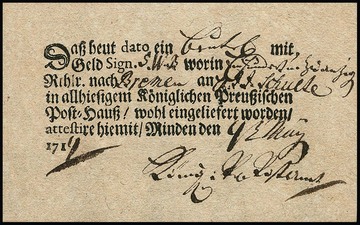 Daß heut dato ein Beutel mit
Geld Sign. worin
Rthlr. nach Bremen an Schulte
in allhiesigem Königlichen Preußischen
Post-Hauß / wohl eingeliefert worden /
attestire hiemit / Minden den May
171
Königl. Postamt